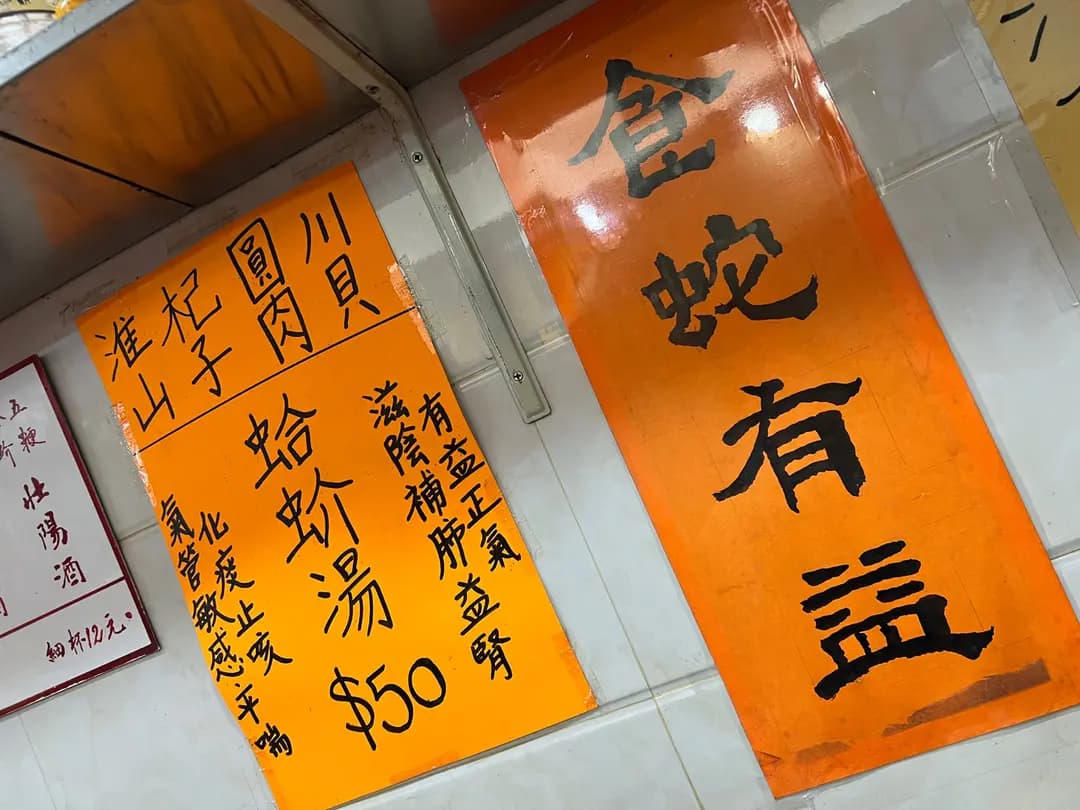 食蛇有益
川貝
圓肉
杞子
淮山
有益正氣
滋陰補肺益腎
蛤蚧湯
$50
化痰止咳
氣管敏感平喘
五
蚧
壯陽酒
細杯12元